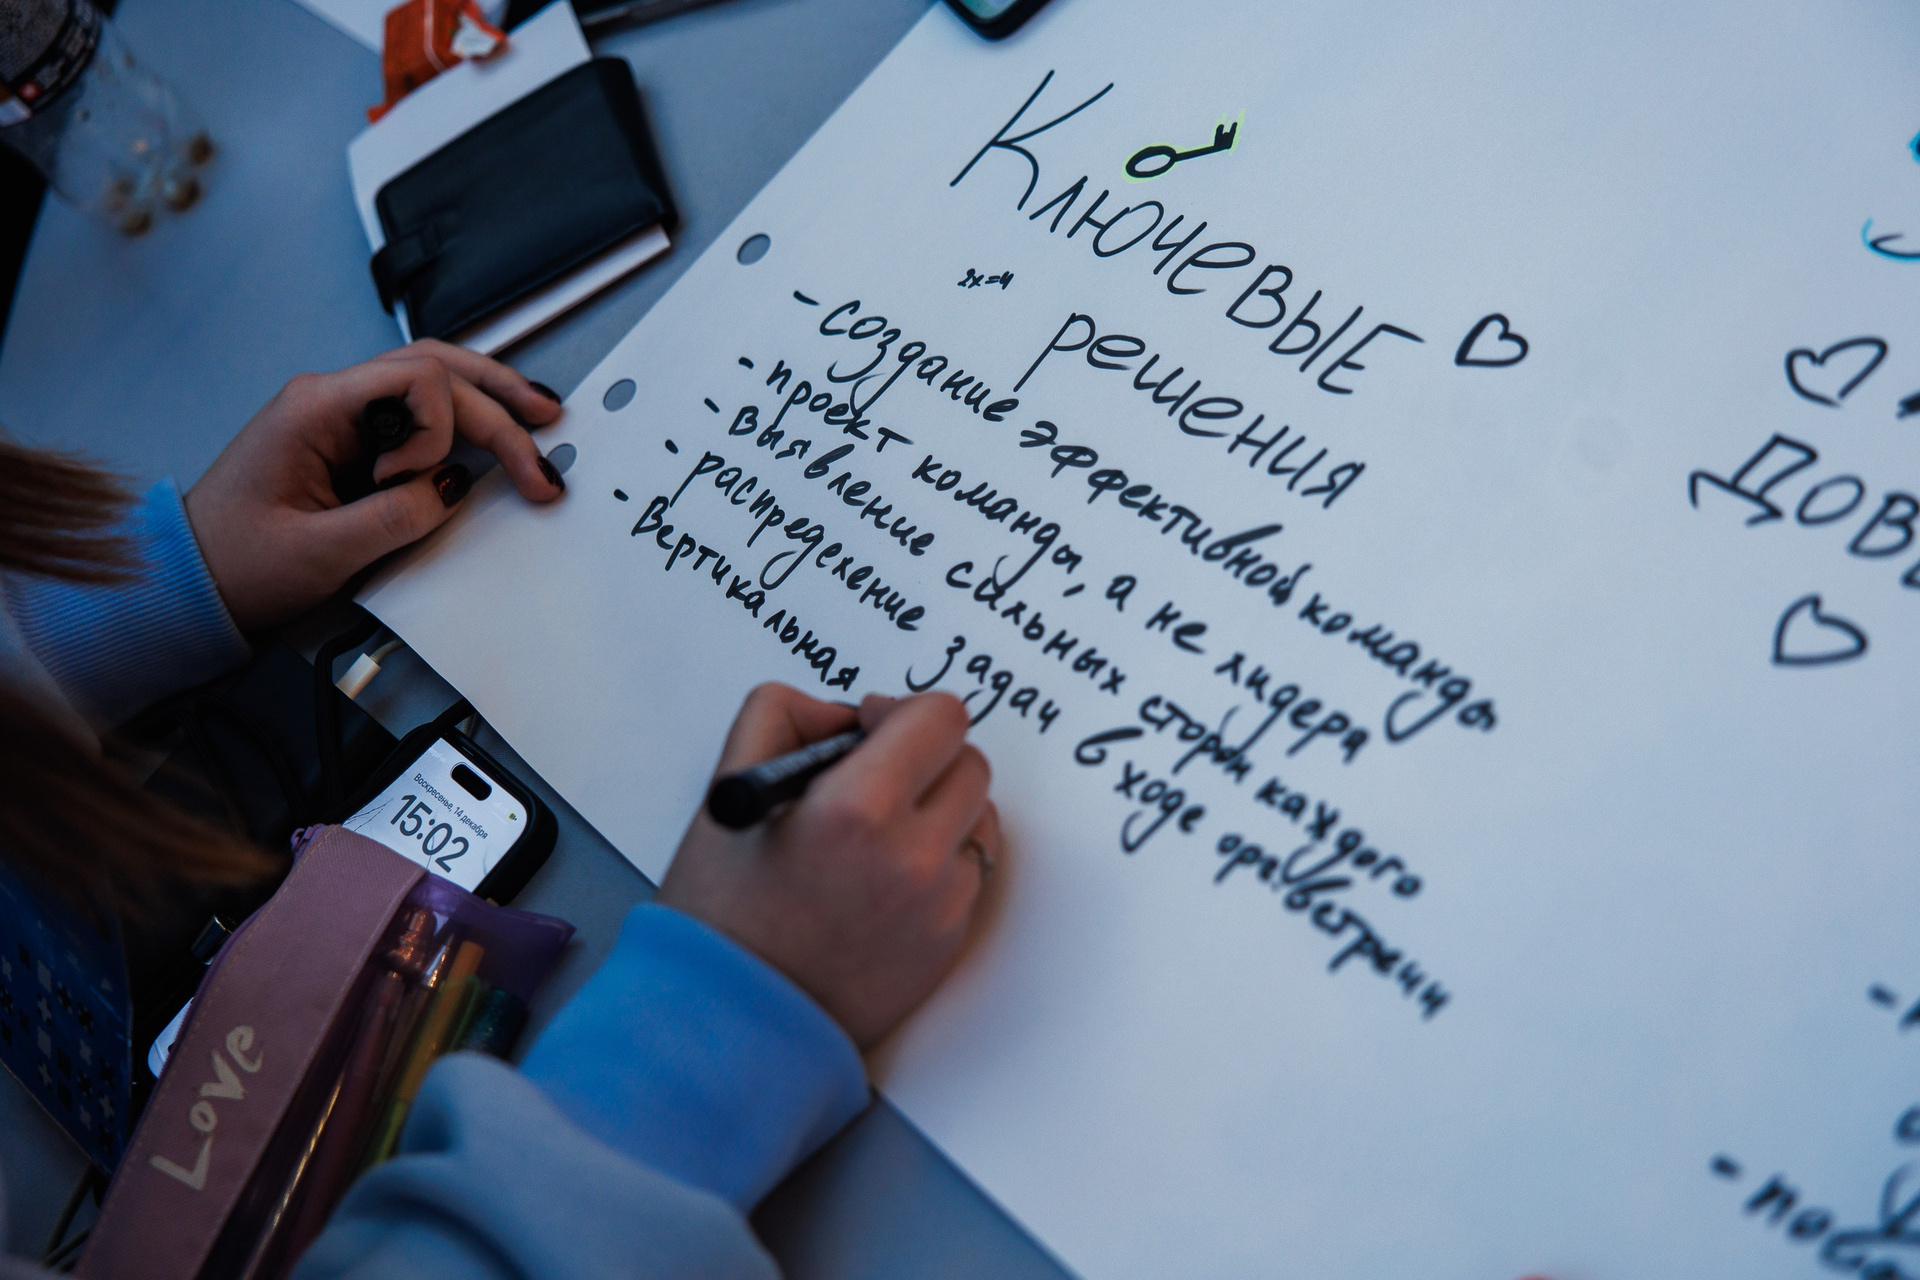 Ключевые
решения
2x=4
- создание эффективной команды
- проект команды, а не лидера
- выявление сильных сторон каждого
- распределение задач в ходе орг. встречи
- Вертикальная
Воскресенье, 14 декабря
15:02
Love